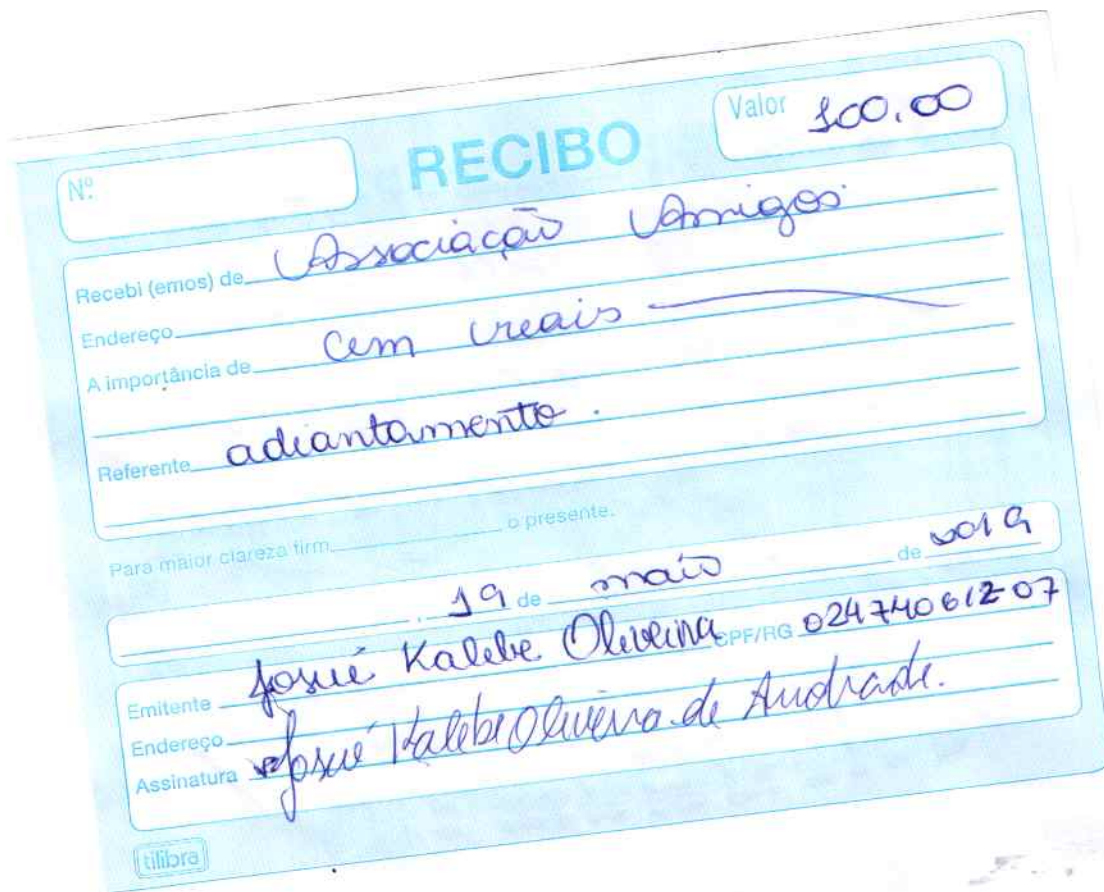 Nº
RECIBO
Valor 100.00
Recebi (emos) de Associação Amigos.
Endereço
A importância de Cem reais
Referente adiantamento.
Para maior clareza firm o presente.
, 19 de maio de 2019
Emitente Josué Kalebe Oliveira CPF/RG 02474061207
Endereço
Assinatura Josué Kalebe Oliveira de Andrade.
tilibra